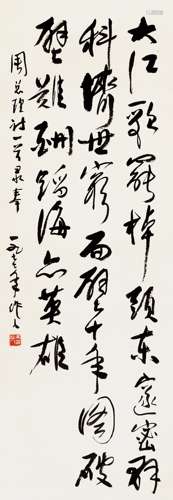 大江歌罢掉头东邃密群
科济世穷面壁十年图破
壁难酬蹈海亦英雄
周总理诗一首录奉